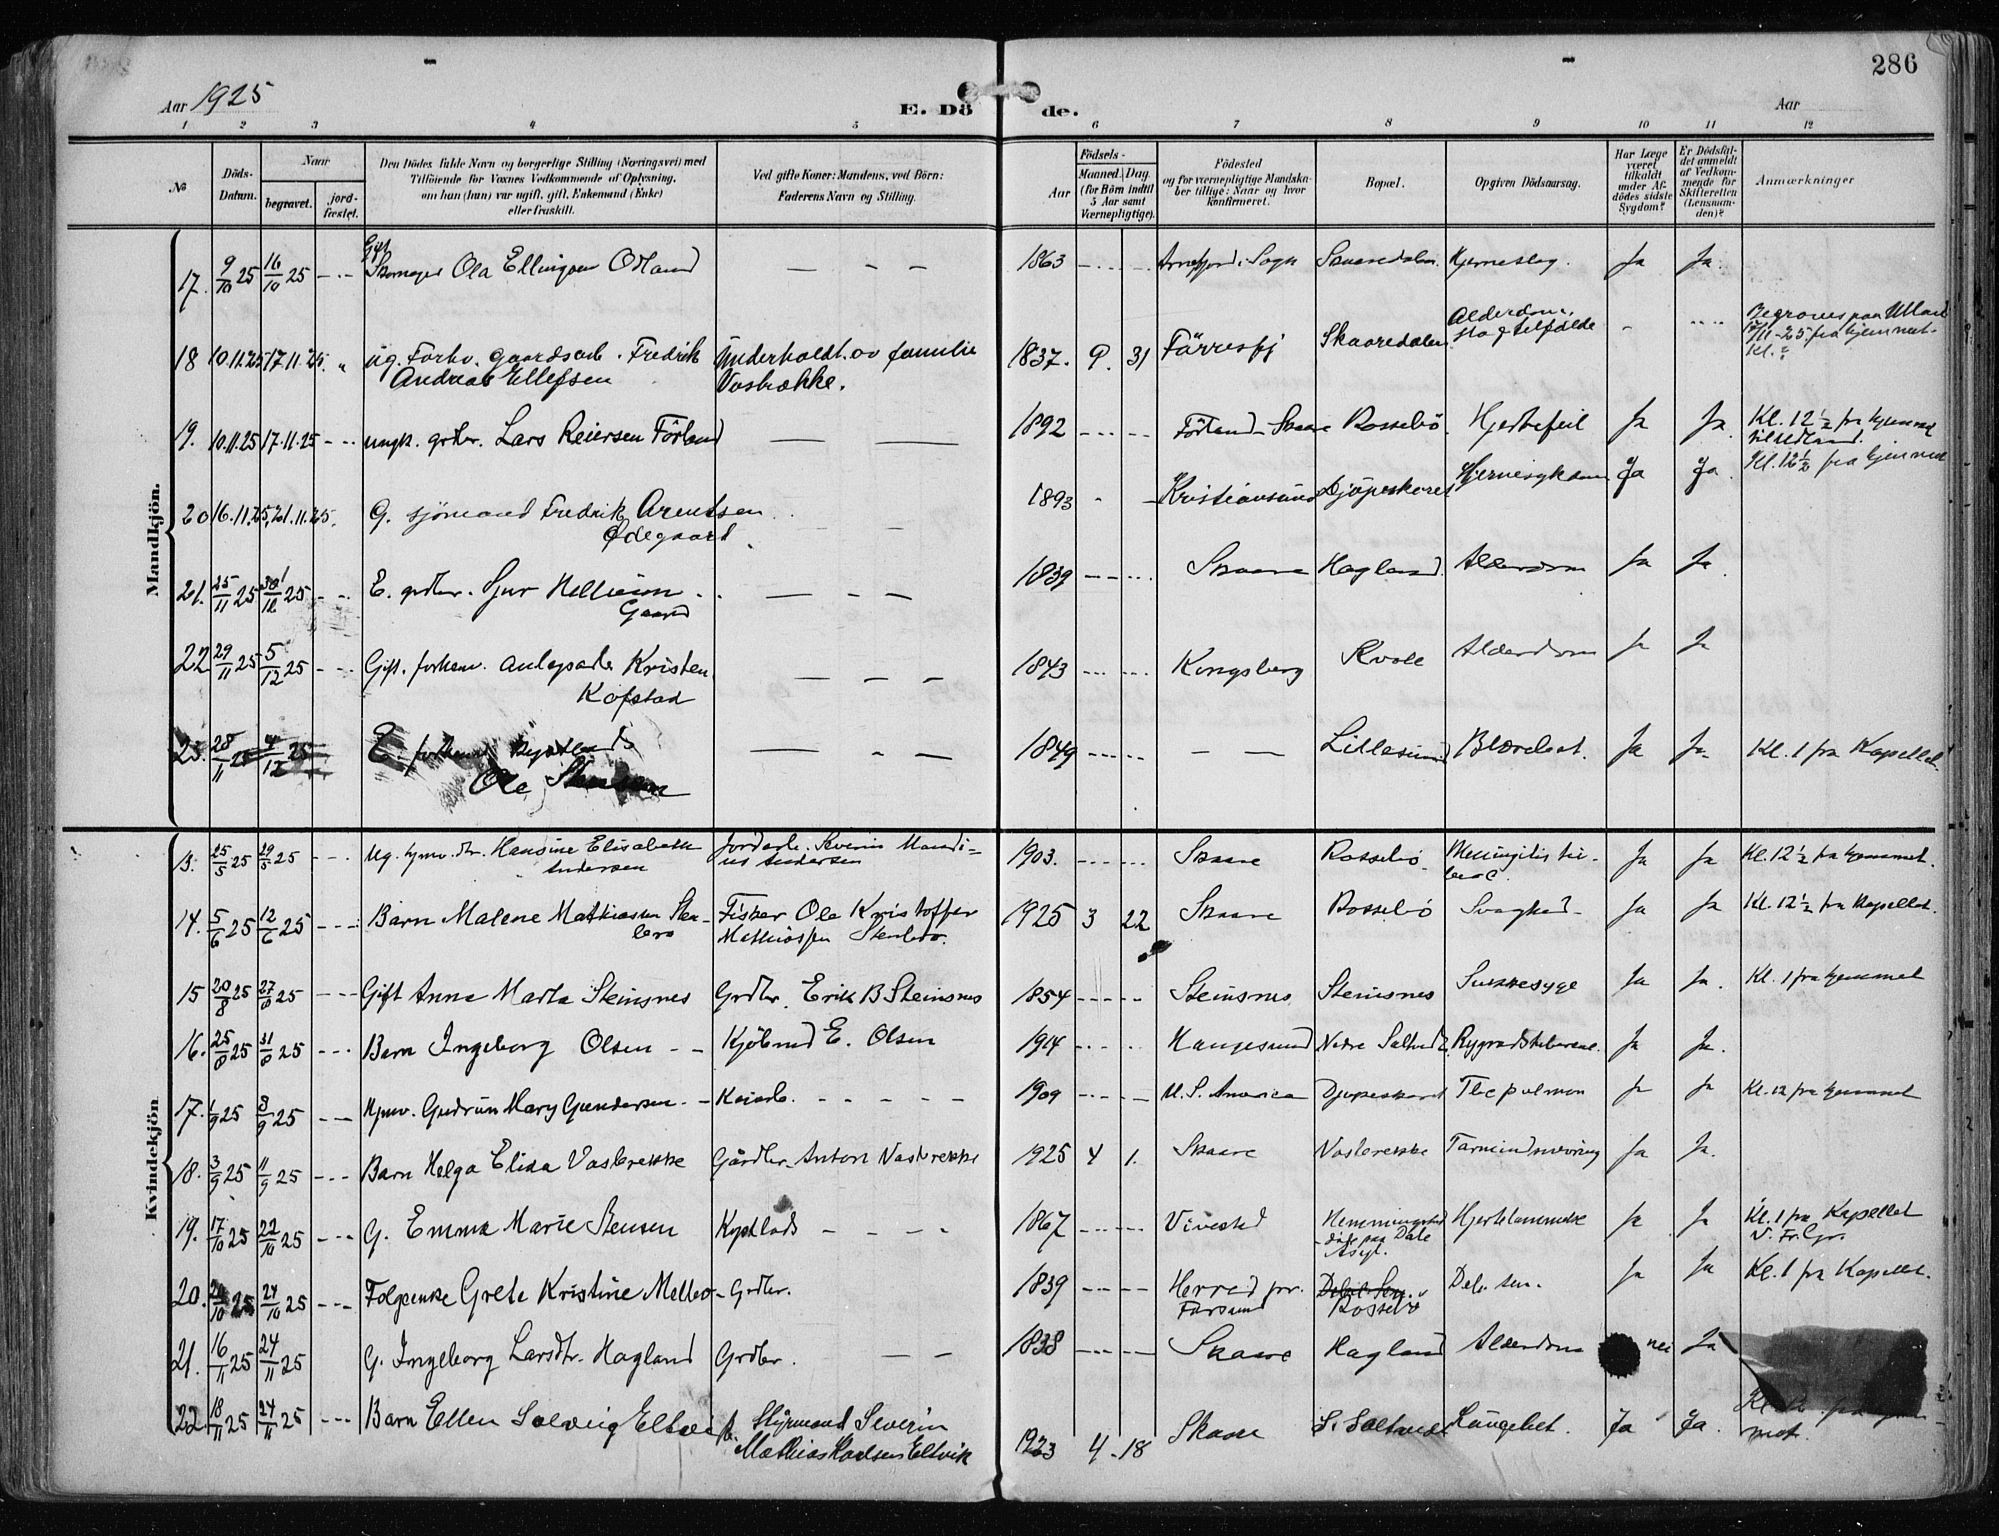 286
Aar 1925
E. Dö de.
Aar
1 2 3 4 5 6 7 8 9 10 11 12
No
Döds-Datum.
Naar
begravet.
jord-fæstet.
Den Dödes fulde Navn og borgerlige Stilling (Næringsvei) med
Tilföiende for Voxnes Vedkommende af Oplysning,
om han (hun) var ugift, gift, Enkemand (Enke)
eller fraskilt.
Ved gifte Koner: Mandens, ved Börn:
Faderens Navn og Stilling.
Födsels-
Aar
Maaned. Dag
(for Börn indtil
5 Aar samt
Værnepligtige).
Födested
og for værnepligtige Mandska-
ber tillige: Naar og hvor
konfirmeret.
Bopæl.
Opgiven Dödsaarsag.
Har Læge
været
tilkaldt
under Af-
dödes sidste
Sygdom?
Er Dödsfal-
det anmeldt
af Vedkom-
mende for
Skifteretten
(Lensman-
den)?
Anmærkninger
Mandkjön.
17. 9/10 25 16/10 25 Gift Skomager Ola Ellingsen Odland 1863 Arnefjord i Sogn Skaaredalen Hjerneslag. Ja Ja.
18 10.11.25 17.11.25. ug. Forhv. gaardsarb. Fredrik Andreas Ellefsen Underholdt. av familie Vasbrække. 1837. 9. 31 Förresfj Skaaredalen Alderdom,
19. 10.11.25 17.11.25 ungk. grdbr. Lars Reiersen Förland 1892 Förland Skaare Rossebö. Hjertefeil Ja Ja Kl. 12 1/2 fra hjemmet
20 16.11.25. 21.11.25. G. sjömand Fredrik Arentsen Ødegaard 1893 Kristiansund Djöpeskaret Hjernesykdom Ja Ja. Kl. 12 1/2 fra hjemmet
21. 25/11 25 25 E. grdbr. Sjur Gaard 1839 Skaare Hagland. Alderdom Ja Ja.
22 29/11 25 5/12 25 Gift. forhenv. Kristen Kofstad 1843 Kongsberg Kvale Alderdom Ja Ja
23. 28/11 25 4/12 25 E. forhenv Ole 1849 Lillesund Ja Ja Kl. 1 fra Kapellet.
Kvindekjön
13. 25/5 25 29/5 25 Ug. hjmv. dtr. Hansine Elisabeth Andersen Jordarb. Severin Mandi-
us Andersen 1903. Skaare Rossebö Meningitis tu-
berc. Ja Ja Kl. 12 1/2 fra hjemmet.
14. 5/6 25 12/6 25 Barn Malene Mathiassen Sten-
berö Fisker Ole Kristoffer
Mathiassen Stenberö. 1925 3 22 Skaare Rossebö Svaghed Ja Ja Kl. 12 1/2 fra Kapellet.
15 20/8 25 27/8 25 Gift Anna Marta Steinsnes Grdbr. Erik B Steinsnes 1854 Steinsnes. Steinsnes Sukkesyge Ja Ja. Kl. 1 fra hjemmet
16. 25/8 25 31/8 25 Barn Ingeborg Olsen Kjöbmd E. Olsen 1914 Haugesund Nedre Rygradstuberkul. Ja Ja.
17. 1/9 25 8/9 25 Hjmv. Gudrun Mary Gundersen Kaiarb. 1909 U. S. America Djupeskaret Tbc pulmon Ja Ja Kl. 12 fra hjemmet
18. 3/9 25 11/9 25 Barn Helga Elisa Vasbrekke Gårdbr. Anton Vasbrekke 1925 4 1. Skaare Vasbrekke Ja Ja.
19. 17/10 25 22/10 25 G. Emma Marie Stensen Kystlods 1867 Vivestad Hjertelammelse Ja Ja Kl. 1 fra Kapellet
V. Fr. Gr.
20. 25 24/10 25 Grete Kristine Mellerö Grdbr. 1839 Herred pr. Farsund Rossebö Deb. sen. Ja Ja Kl. 1 fra Kapellet.
21. 16/11 25 24/11 25 G. Ingeborg Larsdtr. Hagland Grdbr. 1838 Skaare Hagland Alderdom nei Ja
22. 18/11 25 24/11 25 Barn Ellen Solveig Eltvik Styrmand Severin
Mathias Karlsen Eltvik 1923 4 18 Skaare S. Saltveit Lungebet. Ja Ja.